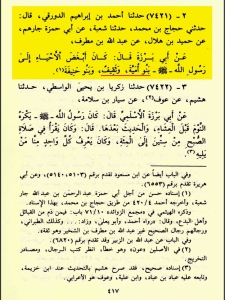 ٢ - (٧٤٢١) حدثنا أحمد بن إبراهيم الدورقي، قال:
حدثني حجاج بن محمد، حدثنا شعبة، عن أبي حمزة جارهم،
عن حميد بن هلال، عن عبد الله بن مطرف،
عَنْ أَبِي بَرْزَةَ قَالَ: كَانَ أَبْغَضَ الْأَحْيَاءِ إِلَى
رَسُولِ اللَّهِ - ﷺ - بَنُو أُمَيَّةَ، وَثَقِيفٌ، وَبَنُو حَنِيفَةَ(١).
٣ - (٧٤٢٢) حدثنا زكريا بن يحيى الواسطي، حدثنا
هشيم، عن عوف(٢)، عن سيار بن سلامة،
عَنْ أَبِي بَرْزَةَ الْأَسْلَمِيِّ قَالَ: كَانَ رَسُولُ اللَّهِ - ﷺ - يَكْرَهُ
النَّوْمَ قَبْلَ الْعِشَاءِ، وَالْحَدِيثَ بَعْدَهَا. قَالَ: وَكَانَ يَقْرَأُ فِي صَلَاةِ
الصُّبْحِ مِنْ سِتِّينَ إِلَى الْمِئَةِ، وَكَانَ يَعْرِفُ كُلُّ وَاحِدٍ مِنَّا مَنْ
يَلِيهِ(٣)
وفي الباب أيضاً عن ابن مسعود تقدم برقم (٥٠١٤، ٥١٤٠) وعن أبي
هريرة تقدم برقم (٦٥٥٣)
(١) إسناده حسن من أجل أبي حمزة عبد الرحمن بن عبد الله جار
شعبة، وأخرجه أحمد ٤٢٠/٤ من طريق حجاج بن محمد، بهذا الإسناد.
وذكره الهيثمي في «مجمع الزوائد» ٧١/١٠ باب: فيمن ذم من القبائل
وأهل البدع، وقال: رواه أحمد، وأبو يعلى، وكذلك الطبراني،
ورجالهم رجال الصحيح غير عبد الله بن مطرف بن الشخير وهو ثقة.
وفي الباب عن عبد الله بن الزبير وقد تقدم برقم (٦٨٢٠)
(٢) في الأصلين «عون» وهو خطأ، انظر كتب الرجال، ومصادر
التخريج.
(٣) إسناده صحيح، فقد صرح هشيم بالتحديث عند ابن خزيمة،
وتابعه عليه عباد بن عباد، وابن علية، وعوف هو الأعرابي.
٤١٧